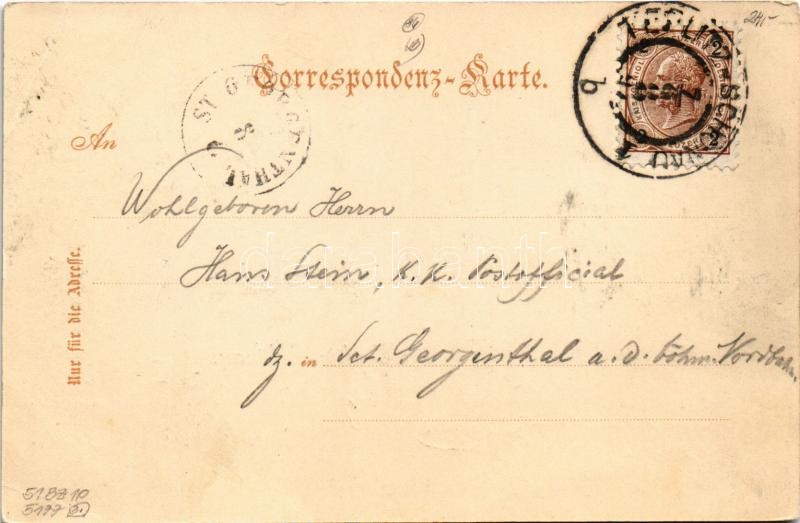 245-
Correspondenz-Karte.
ST GEORGENTHAL
TEPLITZ-SCHÖNAU
An
Wohlgeboren Herrn
Hans Stein, K. K. Postofficial
dz. in Sct. Georgenthal a. d. böhm. Nordbahn.
Nur für die Adresse.
darabanth
51BZ10